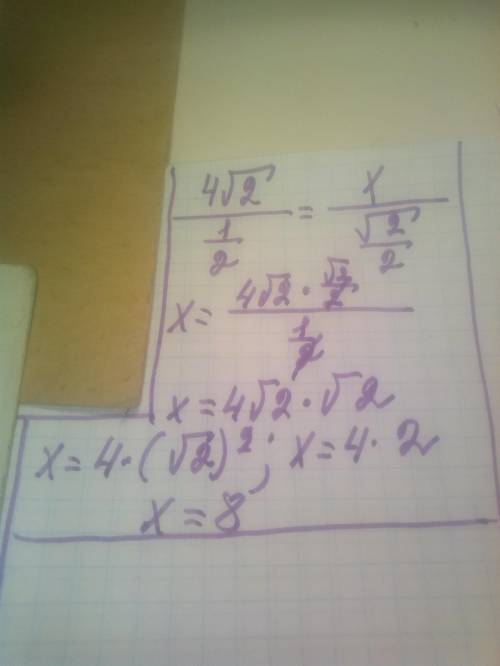 4√2 / (1/2) = x / (√2/2)
x = (4√2 · √2/2) / (1/2)
x = 4√2 · √2
x = 4 · (√2)²; x = 4 · 2
x = 8